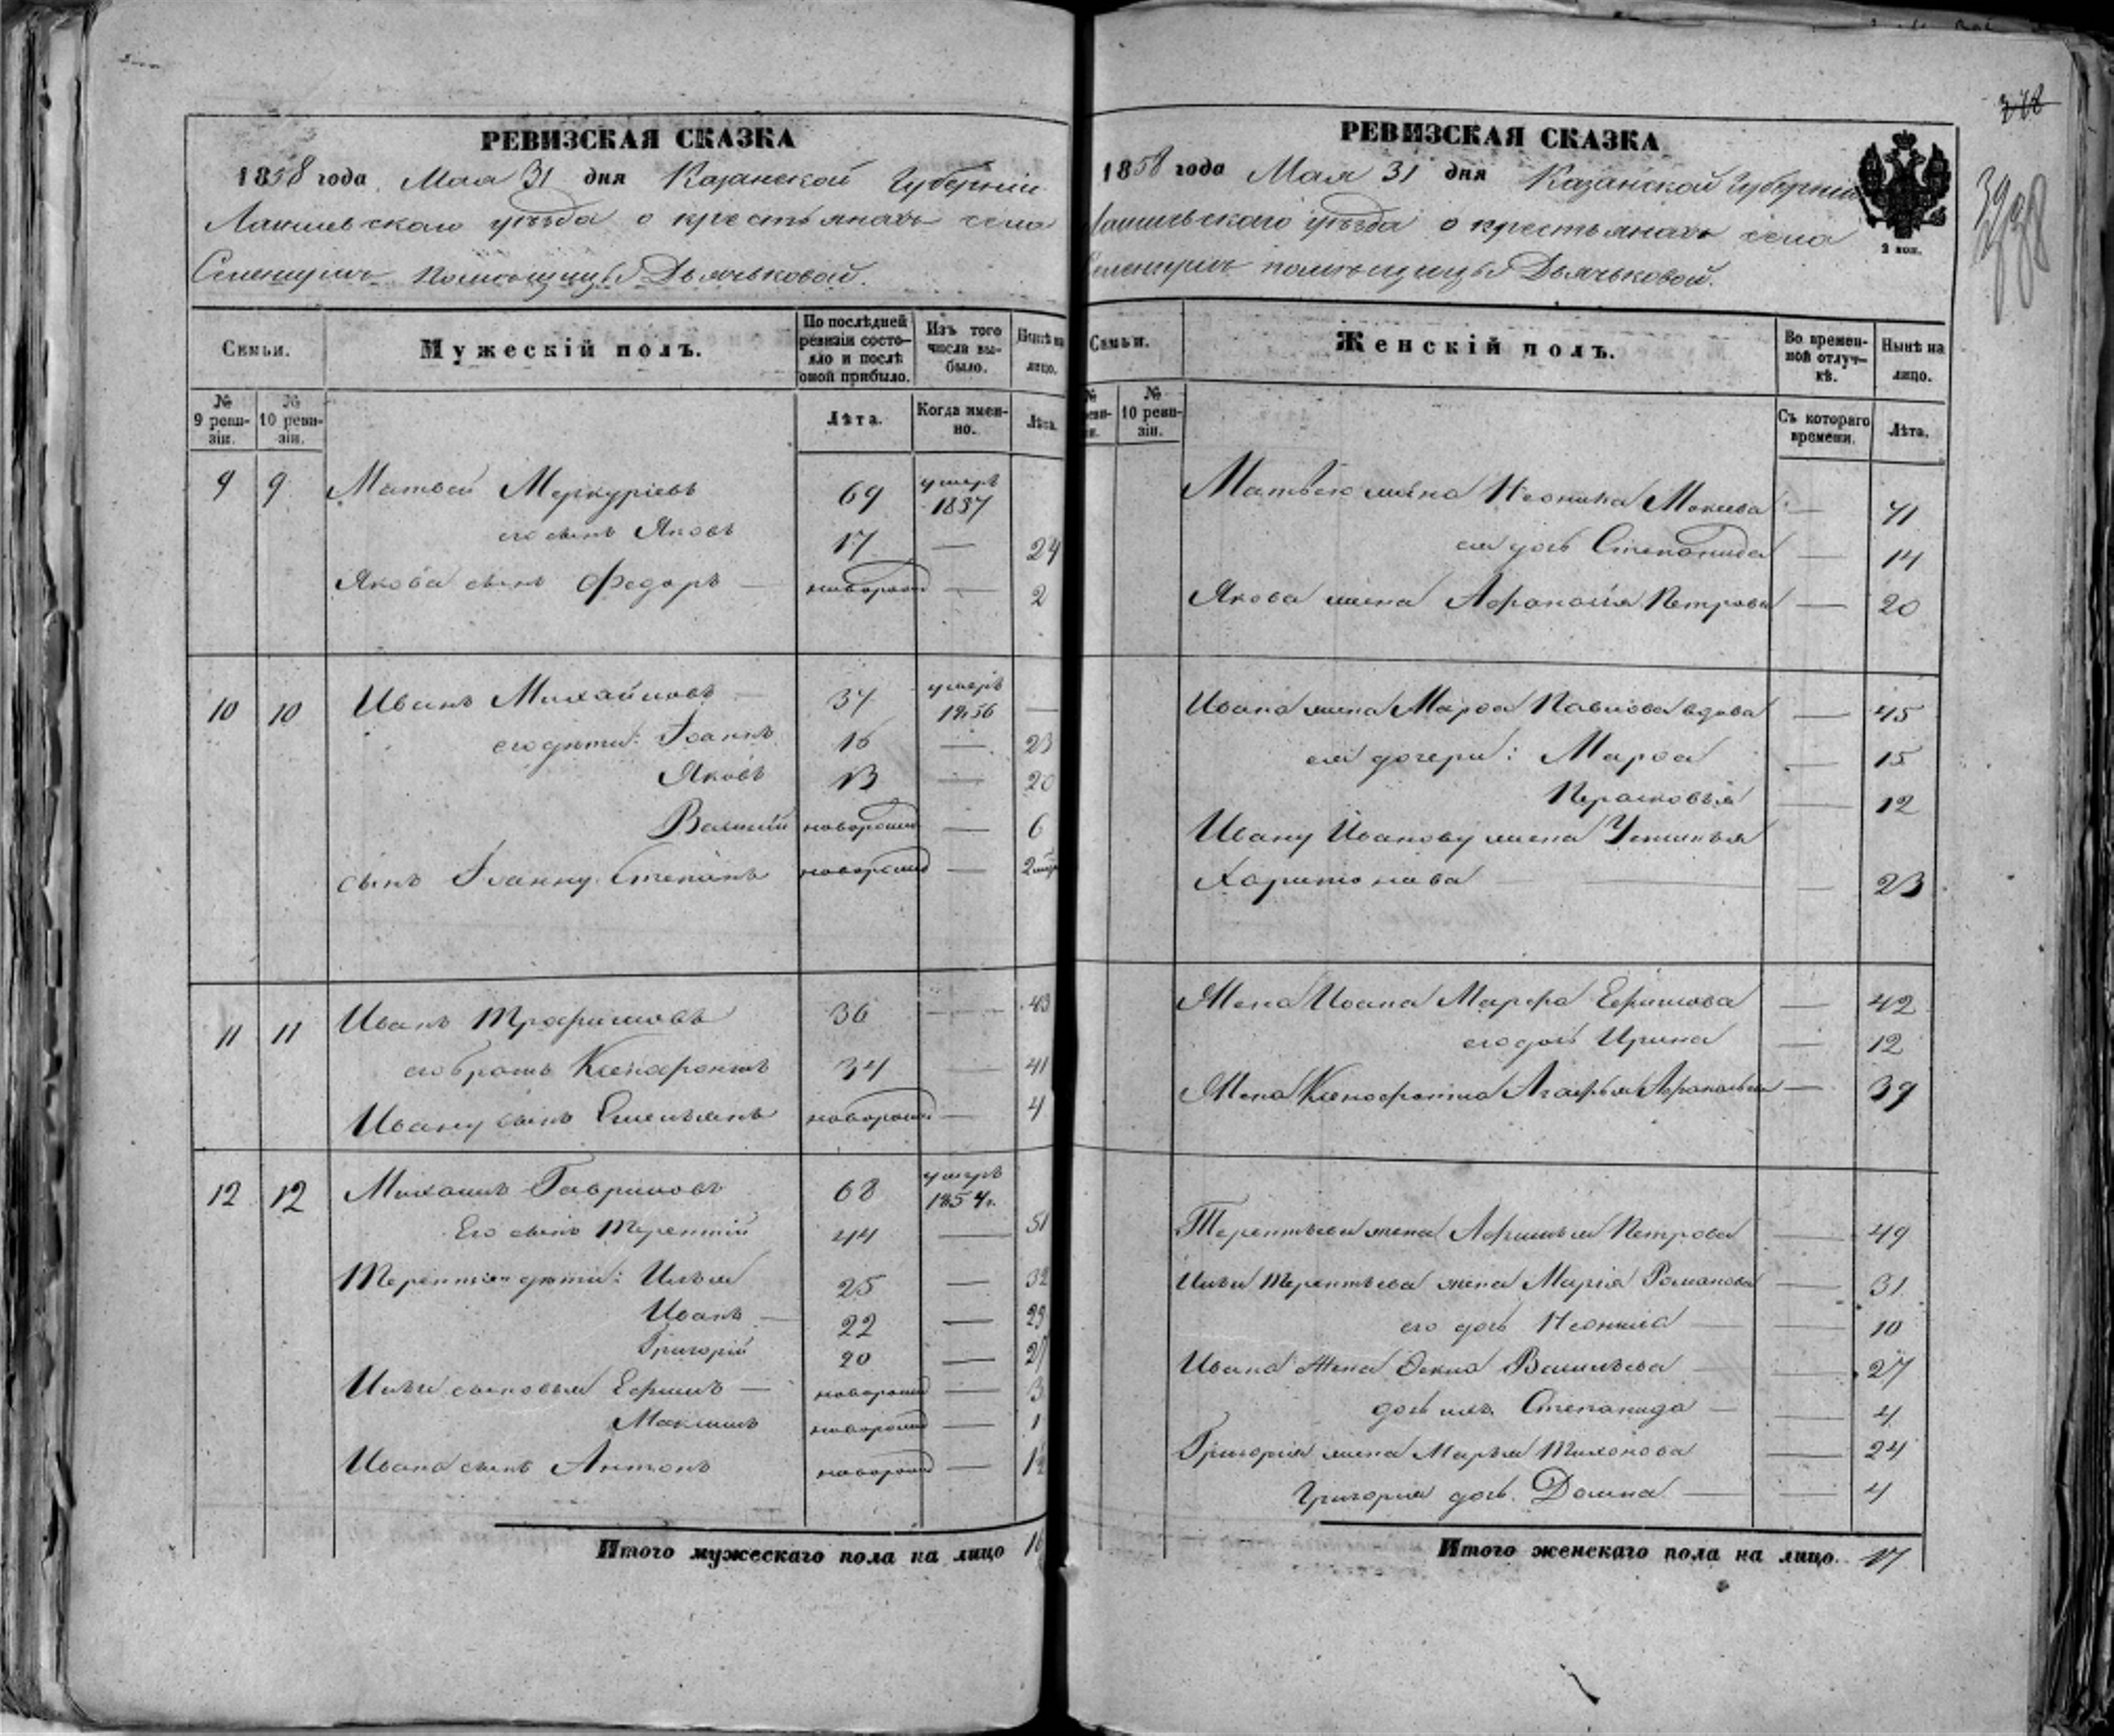 РЕВИЗСКАЯ СКАЗКА
1858 года Мая 31 дня Казанской Губерніи
Лаишевскаго уѣзда о крестьянахъ села
помѣщицы Дьячьковой.
Семьи.
Мужескій полъ.
По послѣдней ревизіи состояло и послѣ оной прибыло.
Изъ того числа выбыло.
Нынѣ на лицо.
№ 9 ревизіи.
№ 10 ревизіи.
Лѣта.
Когда именно.
Лѣта.
9 9 Матвей Меркуріевъ 69 умеръ 1857
его сынъ Яковъ 17 — 24
Якова сынъ Федоръ — новорожд — 2
10 10 Иванъ Михайловъ — 37 умеръ 1856 —
его дѣти: Іоаннъ 16 — 23
Яковъ 13 — 20
Василій новорожд — 6
сынъ Іоанну Степанъ новорожд — 2
11 11 Иванъ Трофимовъ 36 — 43
его братъ Ксенофонтъ 34 — 41
Ивану сынъ Емельянъ новорожд — 4
12 12 Михаилъ Гавриловъ 68 умеръ 1854 г.
Его сынъ Терентій 44 — 51
дѣти: Илья 25 — 32
Иванъ — 22 — 29
Григорій 20 — 27
Ильи сыновья Ефимъ — новорожд — 3
Максимъ новорожд — 1
Ивана сынъ Антонъ новорожд —
Итого мужескаго пола на лицо 16
РЕВИЗСКАЯ СКАЗКА
1858 года Мая 31 дня Казанской Губерніи
Лаишевскаго уѣзда о крестьянахъ села
помѣщицы Дьячьковой.
2 коп.
Семьи.
Женскій полъ.
Во временной отлучкѣ.
Нынѣ на лицо.
№ 10 ревизіи.
Съ котораго времени.
Лѣта.
Матвея жена Неонила Мокеева — 71
ея дочь Степанида — 14
Якова жена Афанасія Петрова — 20
Ивана жена Марѳа Павлова вдова — 45
ея дочери: Марѳа — 15
Прасковья — 12
Ивану Иванову жена Устинья
Харитонова — 23
Жена Ивана Марфа Ефимова — 42
его дочь Ирина — 12
Жена Ксенофонта Агафья Афанасьева — 39
Терентьева жена Афимья Петрова — 49
Ильи Терентьева жена Марія Романова — 31
его дочь Неонила — 10
Ивана Жена Ѳекла Васильева — 27
дочь ихъ Степанида — 4
Григорія жена Марья Тихонова — 24
Григорія дочь Домна — 4
Итого женскаго пола на лицо. 17